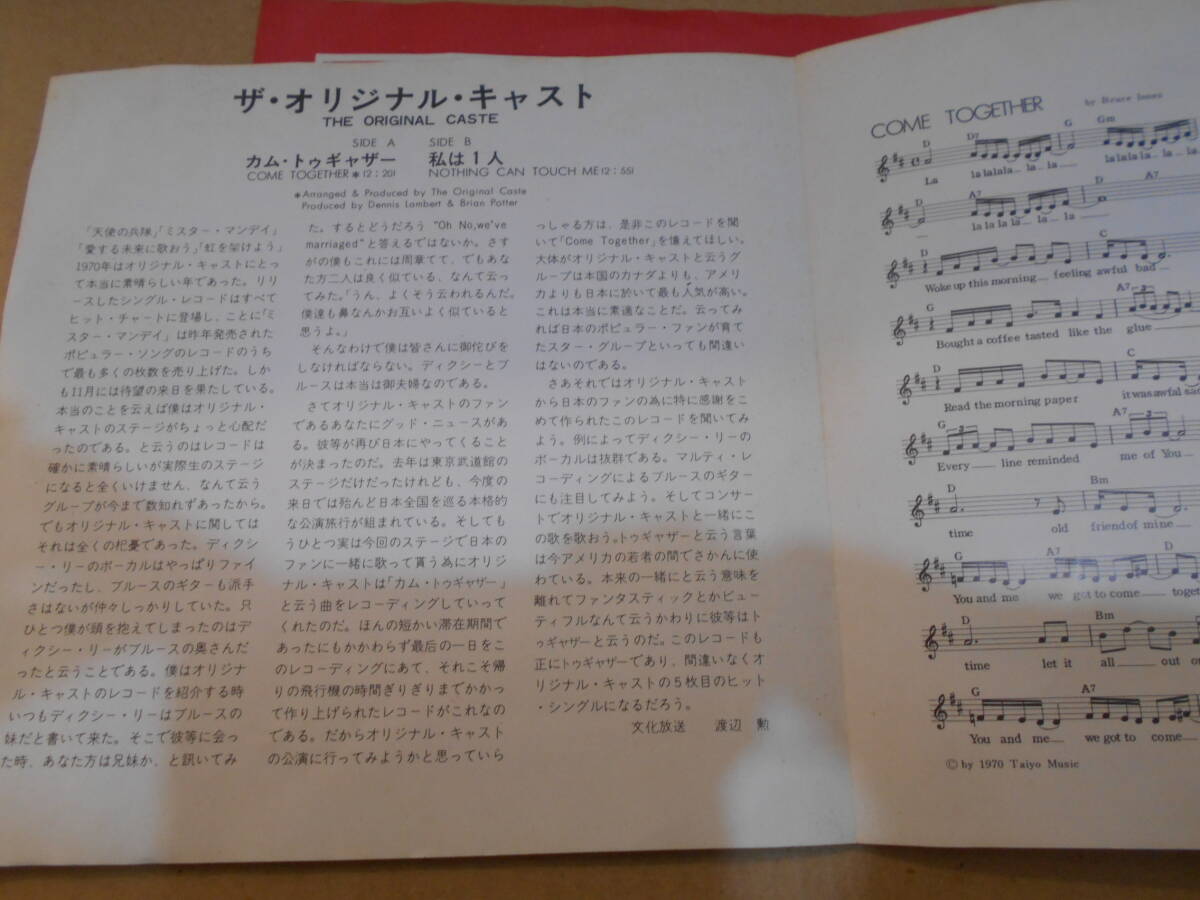 ザ・オリジナル・キャスト
THE ORIGINAL CASTE
SIDE A
カム・トゥギャザー
COME TOGETHER＊(2：20)
SIDE B
私は1人
NOTHING CAN TOUCH ME(2：55)
＊Arranged & Produced by The Original Caste
Produced by Dennis Lambert & Brian Potter
「天使の兵隊」「ミスター・マンデイ」
「愛する未来に歌おう」「虹を架けよう」
1970年はオリジナル・キャストにとっ
て本当に素晴らしい年であった。リリ
ースしたシングル・レコードはすべて
ヒット・チャートに登場し、ことに「ミ
スター・マンデイ」は昨年発売された
ポピュラー・ソングのレコードのうち
で最も多くの枚数を売り上げた。しか
も11月には待望の来日を果たしている。
本当のことを云えば僕はオリジナル・
キャストのステージがちょっと心配だ
ったのである。と云うのはレコードは
確かに素晴らしいが実際生のステージ
になると全くいけません、なんて云う
グループが今まで数知れずあったから。
でもオリジナル・キャストに関しては
それは全くの杞憂であった。ディクシ
ー・リーのボーカルはやっぱりファイ
ンだったし、ブルースのギターも派手
さはないが仲々しっかりしていた。只
ひとつ僕が頭を抱えてしまったのはデ
ィクシー・リーがブルースの奥さんだ
ったと云うことである。僕はオリジナ
ル・キャストのレコードを紹介する時
いつもディクシー・リーはブルースの
妹だと書いて来た。そこで彼等に会っ
た時、あなた方は兄妹か、と訊いてみ
た。するとどうだろう "Oh No,we've
marriaged"と答えるではないか。さす
がの僕もこれには周章てて、でもあな
た方二人は良く似ている、なんて云っ
てみた。「うん、よくそう云われるんだ。
僕達も鼻なんかお互いよく似ていると
思うよ。」
そんなわけで僕は皆さんに御侘びを
しなければならない。ディクシーとブ
ルースは本当は御夫婦なのである。
さてオリジナル・キャストのファン
であるあなたにグッド・ニュースがあ
る。彼等が再び日本にやってくること
が決まったのだ。去年は東京武道館の
ステージだけだったけれども、今度の
来日では殆んど日本全国を巡る本格的
な公演旅行が組まれている。そしても
うひとつ実は今回のステージで日本の
ファンに一緒に歌って貰う為にオリジ
ナル・キャストは「カム・トゥギャザー」
と云う曲をレコーディングしていって
くれたのだ。ほんの短かい滞在期間で
あったにもかかわらず最后の一日をこ
のレコーディングにあて、それこそ帰
りの飛行機の時間ぎりぎりまでかかっ
て作り上げられたレコードがこれなの
である。だからオリジナル・キャスト
の公演に行ってみようかと思っていら
っしゃる方は、是非このレコードを聞
いて「Come Together」を憶えてほしい。
大体がオリジナル・キャストと云うグ
ループは本国のカナダよりも、アメリ
カよりも日本に於いて最も人気が高い。
これは本当に素適なことだ。云ってみ
れば日本のポピュラー・ファンが育て
たスター・グループといっても間違い
はないのである。
さあそれではオリジナル・キャスト
から日本のファンの為に特に感謝をこ
めて作られたこのレコードを聞いてみ
よう。例によってディクシー・リーの
ボーカルは抜群である。マルティ・レ
コーディングによるブルースのギター
にも注目してみよう。そしてコンサー
トでオリジナル・キャストと一緒にこ
の歌を歌おう。トゥギャザーと云う言葉
は今アメリカの若者の間でさかんに使
われている。本来の一緒にと云う意味を
離れてファンタスティックとかビュー
ティフルなんて云うかわりに彼等はト
ゥギャザーと云うのだ。このレコードも
正にトゥギャザーであり、間違いなくオ
リジナル・キャストの5枚目のヒット
・シングルになるだろう。
文化放送 渡辺 勲
COME TOGETHER
by Bruce Innes
D D7 G Gm
La la lalala la la lalala la la la
D A7 D A7
la la la la la la
D C
Woke up this morning feeling awful bad
G A7
Bought a coffee tasted like the glue
D C
Read the morning paper it was awful sad
G A7
Every line reminded me of You
D Bm
time old friend of mine
G A7 D
You and me we got to come
D Bm
time let it all out
G A7
You and me we got to come
Ⓒ by 1970 Taiyo Music